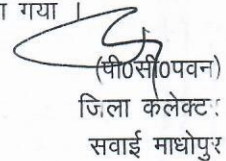 गया
(पी0सी0पवन)
जिला कलेक्टर
सवाई माधोपुर